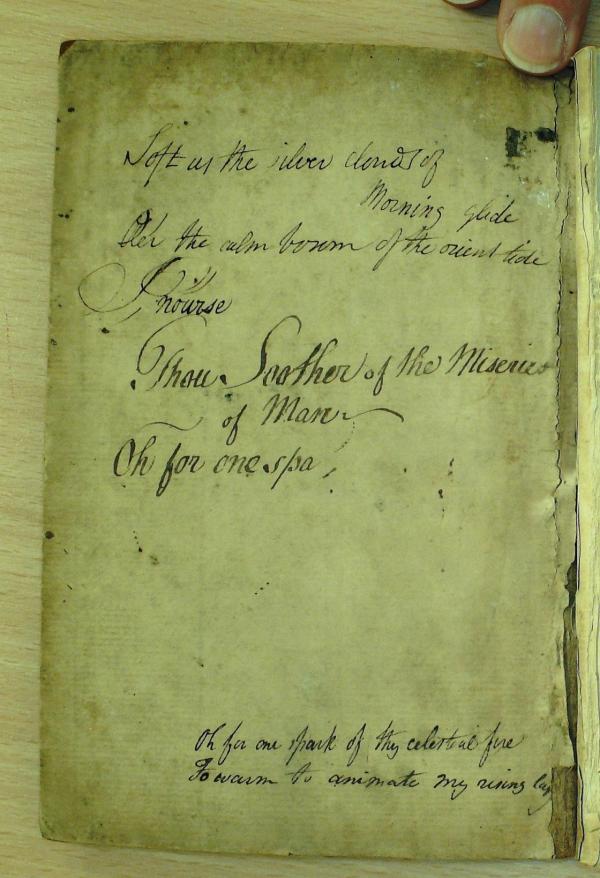 Soft as the silver clouds of
Morning glide
O'er the calm bosom of the orient tide
Thou Soother of the Miseries
of Man
Oh for one spa
Oh for one spark of thy celestial fire
To warm to animate my rising lay